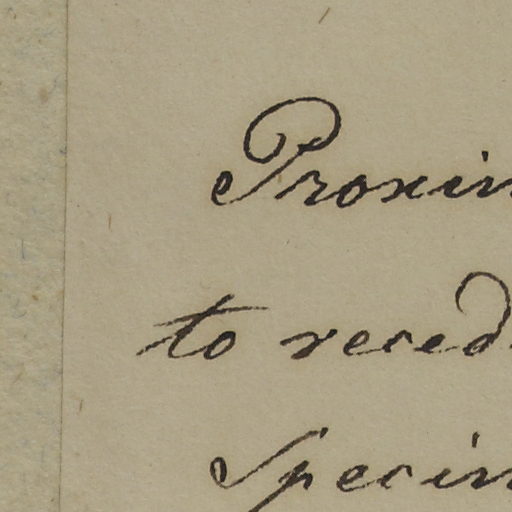 Proxim
to reced
Specim